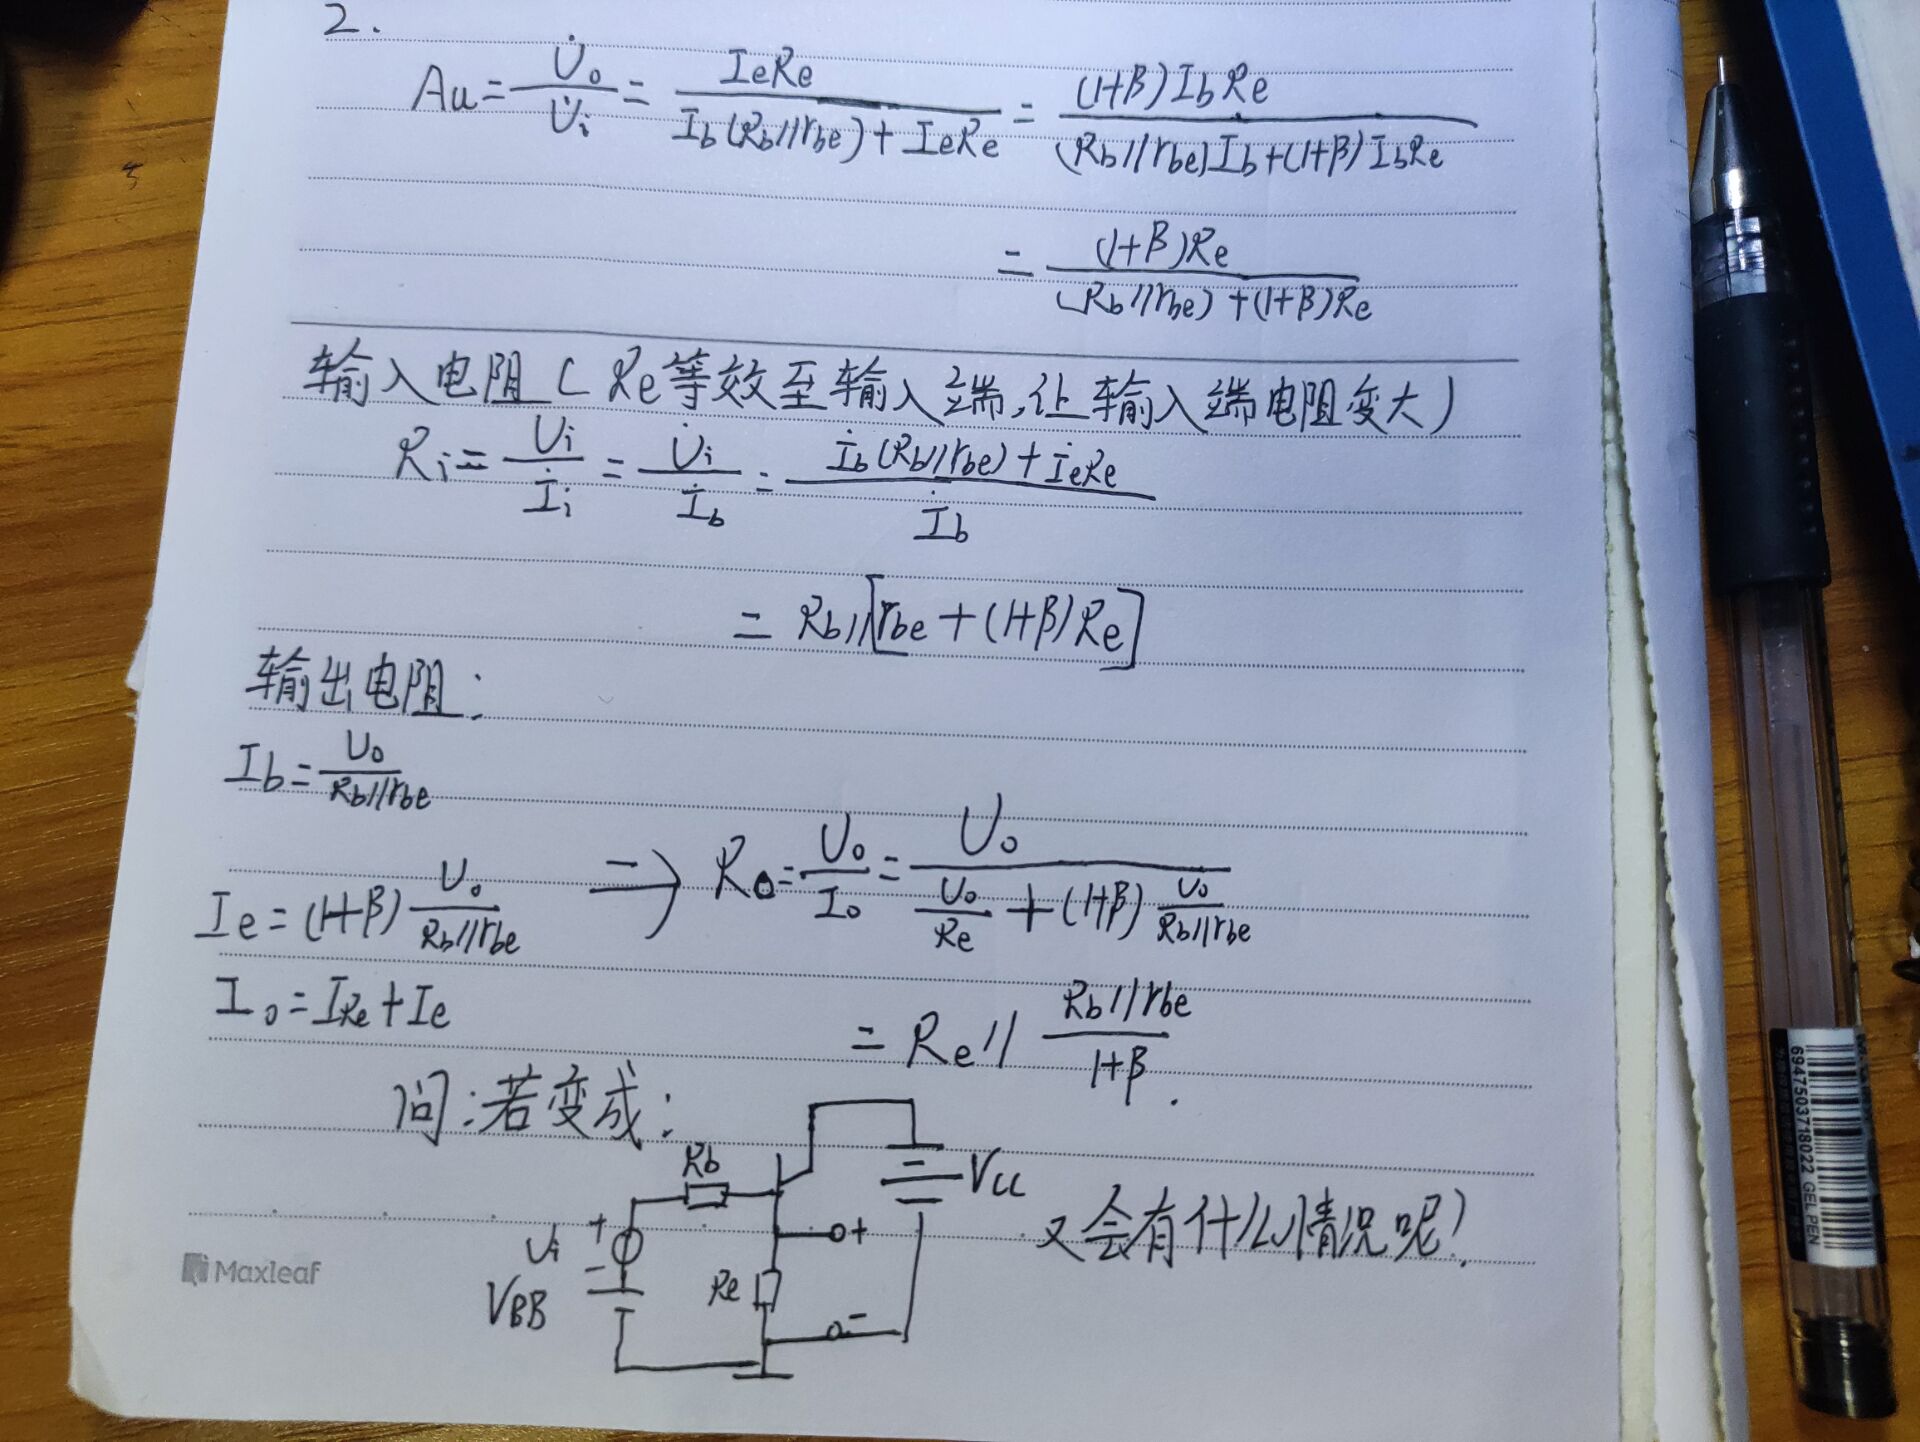 2.
Au = U̇o/U̇i = IeRe/(Ib(Rb//rbe)+IeRe) = (1+β)IbRe/((Rb//rbe)Ib+(1+β)IbRe)
= (1+β)Re/((Rb//rbe)+(1+β)Re)
输入电阻(Re等效至输入端,让输入端电阻变大)
Ri = U̇i/İi = U̇i/İb = (İb(Rb//rbe)+İeRe)/İb
= Rb//[rbe+(1+β)Re]
输出电阻:
Ib = Uo/(Rb//rbe)
Ie = (1+β) Uo/(Rb//rbe) ⇒ Ro = Uo/Io = Uo/(Uo/Re + (1+β) Uo/(Rb//rbe))
Io = IRe + Ie
= Re // (Rb//rbe)/(1+β).
问:若变成:
Rb
Vcc
Ui
+
-
VBB
Re
+
-
又会有什么情况呢?
Maxleaf
6947503718022 GEL PEN